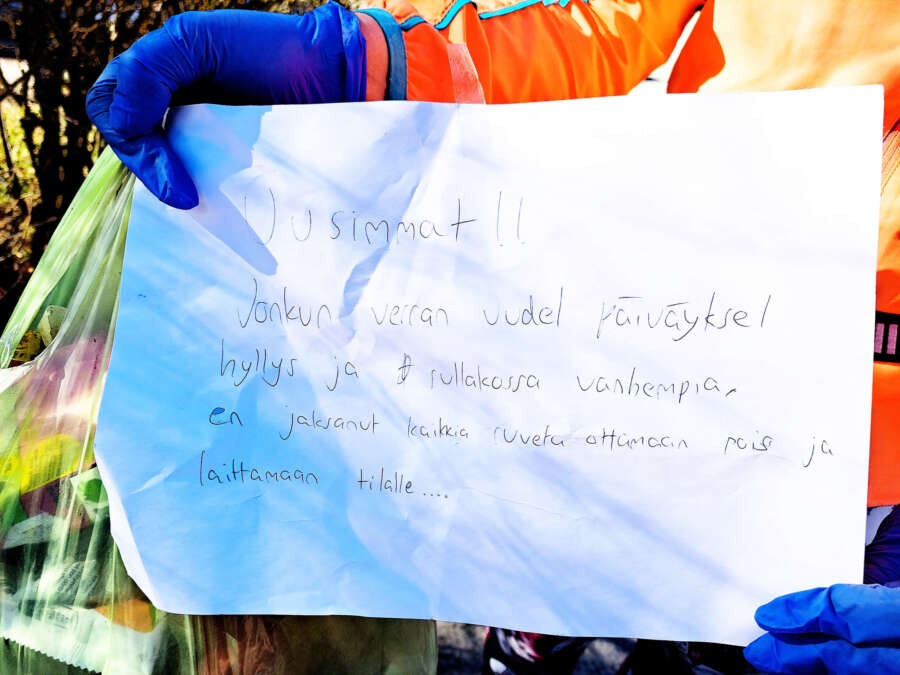 Uusimmat!!
Jonkun verran uudel päiväyksel
hyllys ja rullakossa vanhempia,
en jaksanut kaikkia ruveta ottamaan pois ja
laittamaan tilalle....